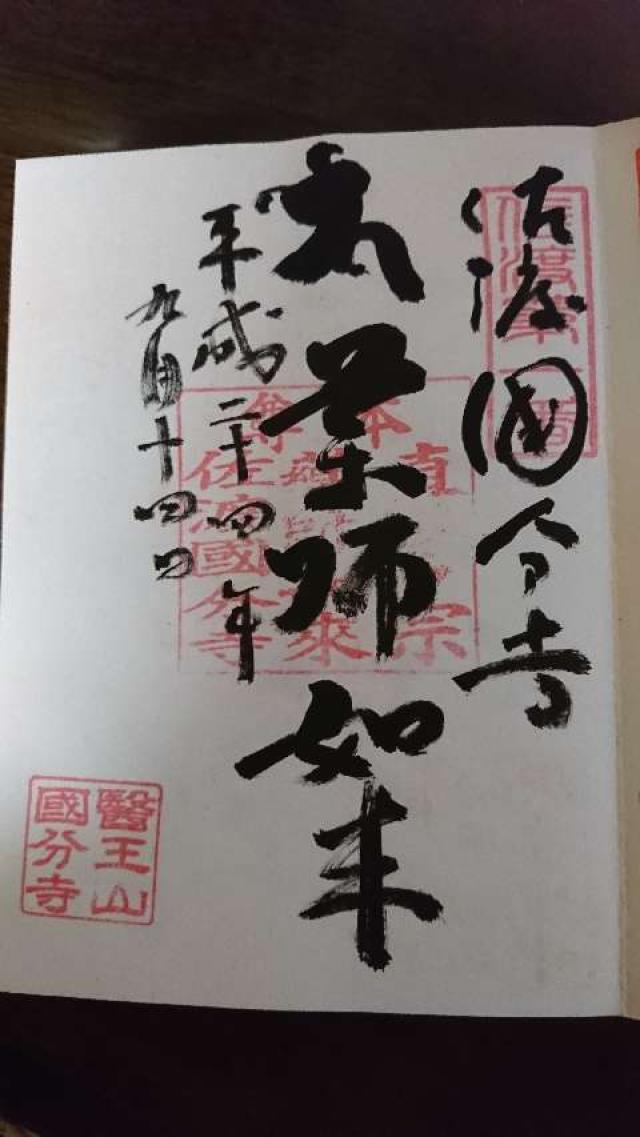 佐渡國分寺
薬師如来
平成二十四年
九月十四日
本尊
真言宗
佐渡國分寺
醫王山
國分寺